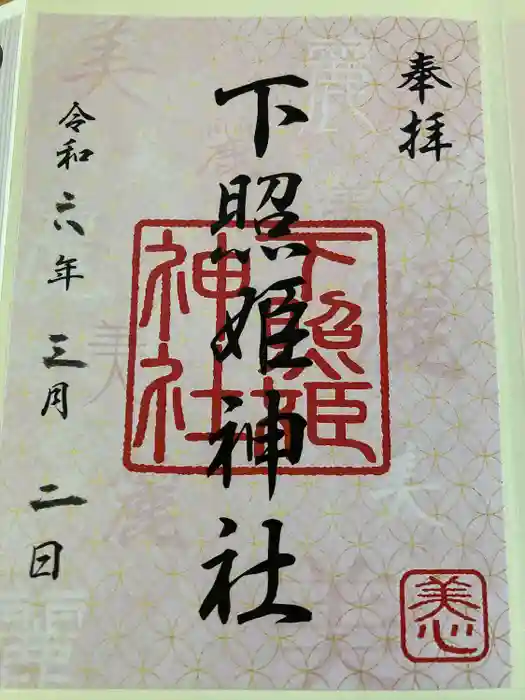 奉拝
下照姫神社
下照姫
神社
令和六年 三月 二日
美心